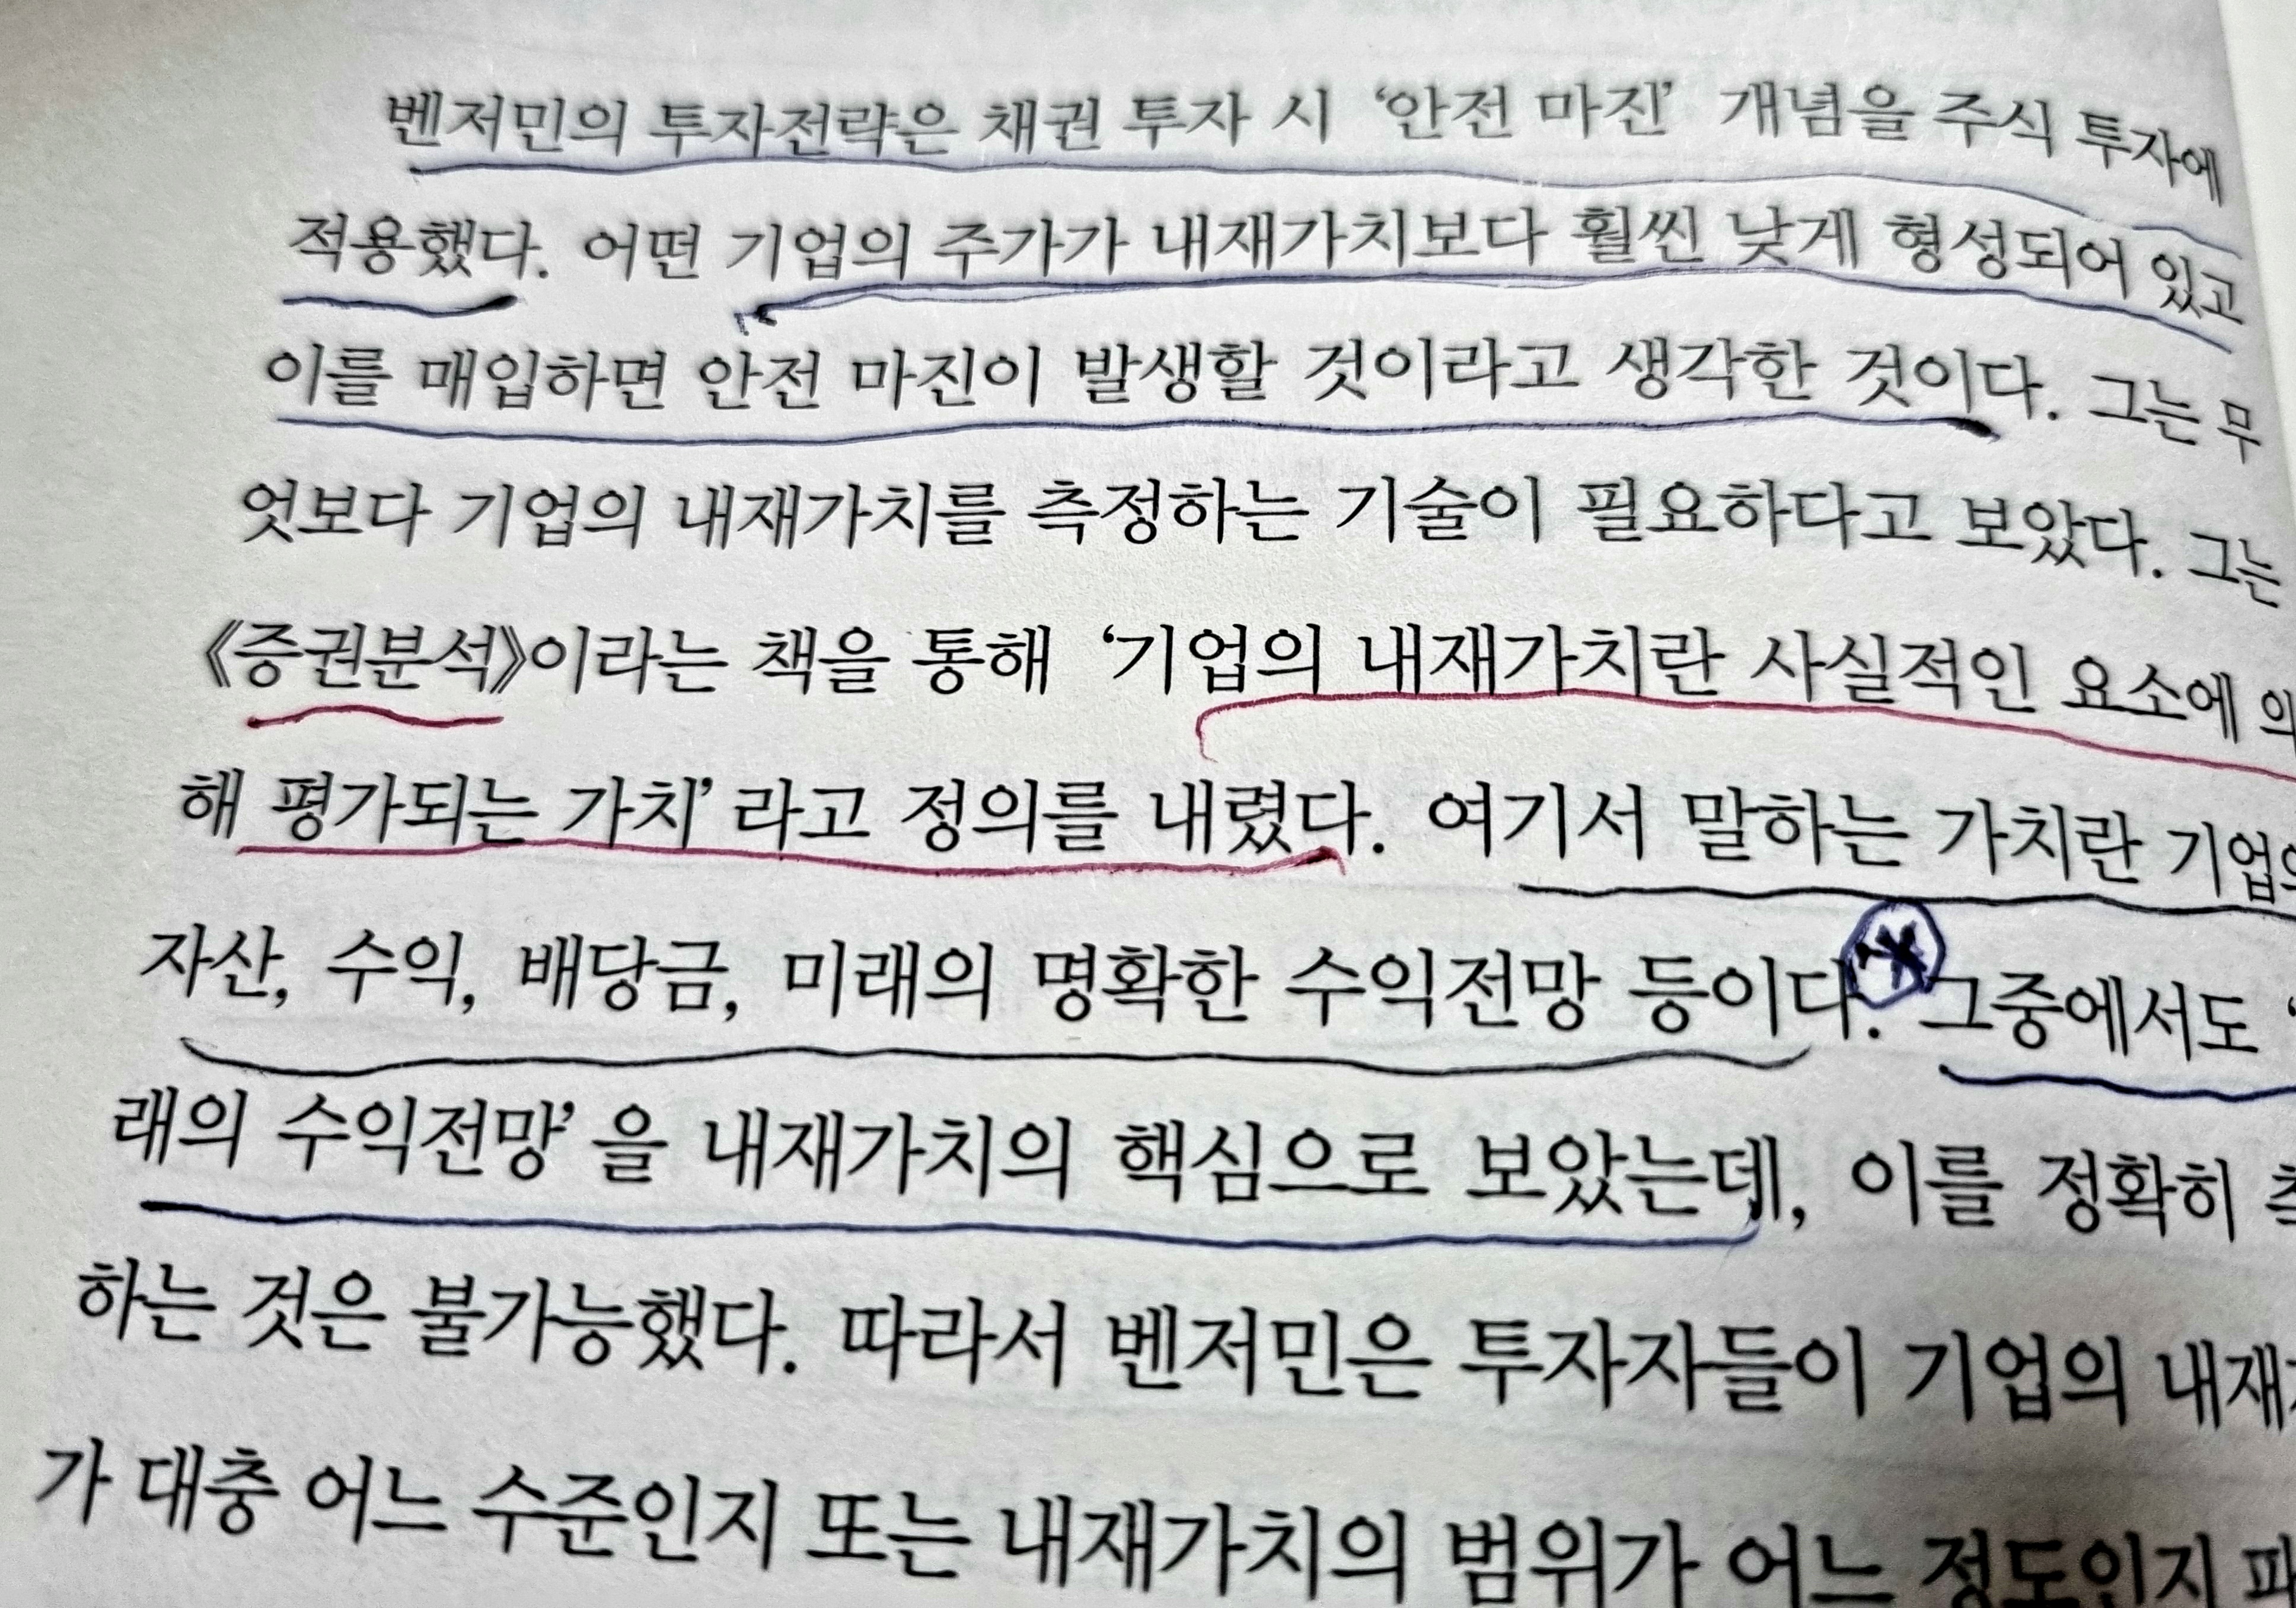 벤저민의 투자전략은 채권 투자 시 ‘안전 마진’ 개념을 주식 투자에
적용했다. 어떤 기업의 주가가 내재가치보다 훨씬 낮게 형성되어 있고
이를 매입하면 안전 마진이 발생할 것이라고 생각한 것이다. 그는 무
엇보다 기업의 내재가치를 측정하는 기술이 필요하다고 보았다. 그는
《증권분석》이라는 책을 통해 ‘기업의 내재가치란 사실적인 요소에 의
해 평가되는 가치’라고 정의를 내렸다. 여기서 말하는 가치란 기업의
자산, 수익, 배당금, 미래의 명확한 수익전망 등이다. 그중에서도 ‘
래의 수익전망’을 내재가치의 핵심으로 보았는데, 이를 정확히
하는 것은 불가능했다. 따라서 벤저민은 투자자들이 기업의 내재
가 대충 어느 수준인지 또는 내재가치의 범위가 어느 정도인지